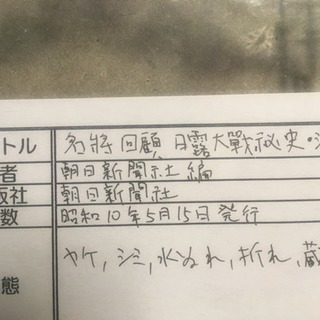 トル 名將回顧 日露大戰秘史・
者 朝日新聞社 編
版社 朝日新聞社
数 昭和10年5月15日 発行
態 ヤケ,シミ,水ぬれ,折れ,蔵